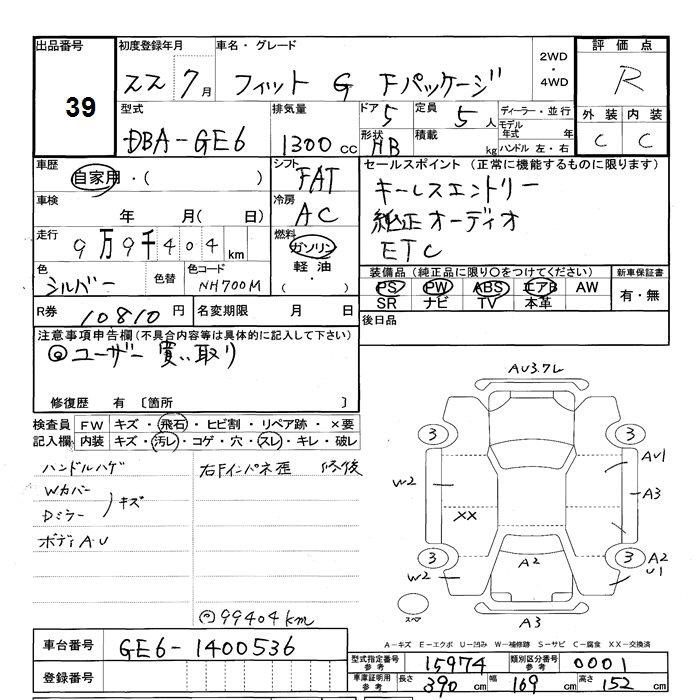 出品番号 初度登録年月 車名・グレード 2WD ・ 4WD 評価点
39 22 7月 フィット G Fパッケージ R
型式 排気量 ドア 5 定員 5人 ディーラー・並行 外装 内装
DBA-GE6 1300cc 形状 HB 積載 kg モデル年式 年 ハンドル 左・右 C C
車歴 自家用・( ) シフト FAT セールスポイント(正常に機能するものに限ります)
車検 年 月( 日) 冷房 AC キーレスエントリー
純正オーディオ
走行 9万9千404km 燃料 ガソリン 軽油 ・ ( ) ETC
色 シルバー 色替 色コード NH700M 装備品(純正品に限り○をつけてください) 新車保証書
PS PW ABS エアB AW 有・無
SR ナビ TV 本革
R券 10810円 名変期限 月 日 後日品
注意事項申告欄(不具合内容等は具体的に記入して下さい)
◎ユーザー買い取り
修復歴 有 〔箇所 〕
検査員 FW キズ・飛石・ヒビ割・リペア跡・×要
記入欄 内装 キズ・汚レ・コゲ・穴・スレ・キレ・破レ
ハンドルハゲ 右Fインパネ歪 修後
Wカバー
Dミラー キズ
ボディA・U
◎99404km
AU3.7L
3 3
AU1
W2 A3
XX
3 3
W2 A2 A2
U1
スペア A3
A-キズ E-エクボ U-凹み W-補修跡 S-サビ C-腐食 XX-交換済
車台番号 GE6-1400536
登録番号
型式指定番号 参考 15974 類別区分番号 参考 0001
車庫証明用 参考 長さ 390cm 幅 169cm 高さ 152cm